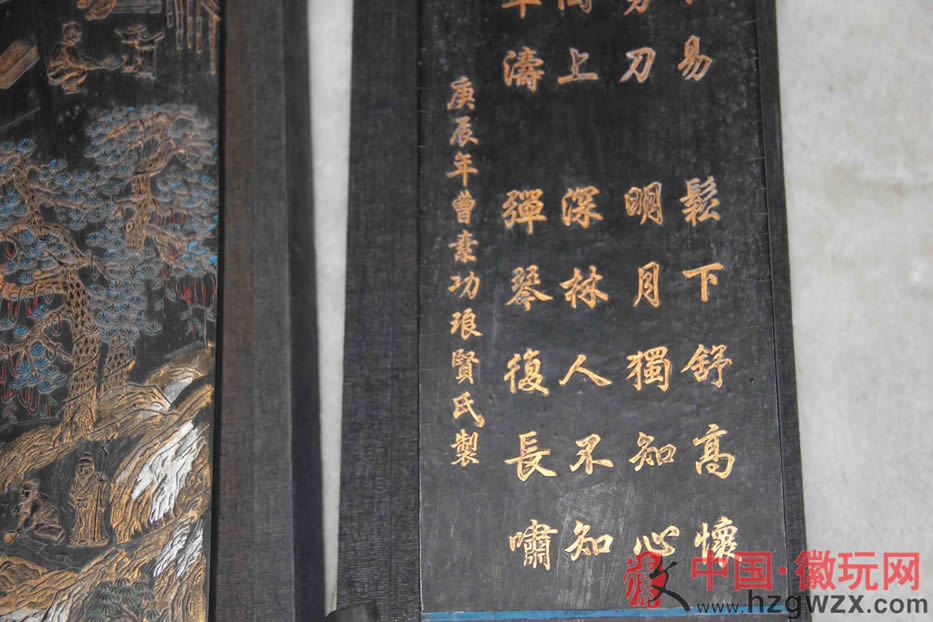 易 鬆下舒高懷
刀 明月獨知心
上 深林人不知
濤 彈琴復長嘯
庚辰年曹素功琅賢氏製
中国·徽玩网
www.hzgwzx.com